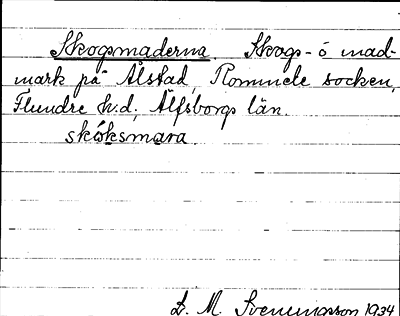 Skogsmaderna. Skogs- o mad-
mark på Ålstad, Rommele socken,
Flundre h.d., Älfsborgs län.
skóksmara.
D. M. Svenungsson 1934